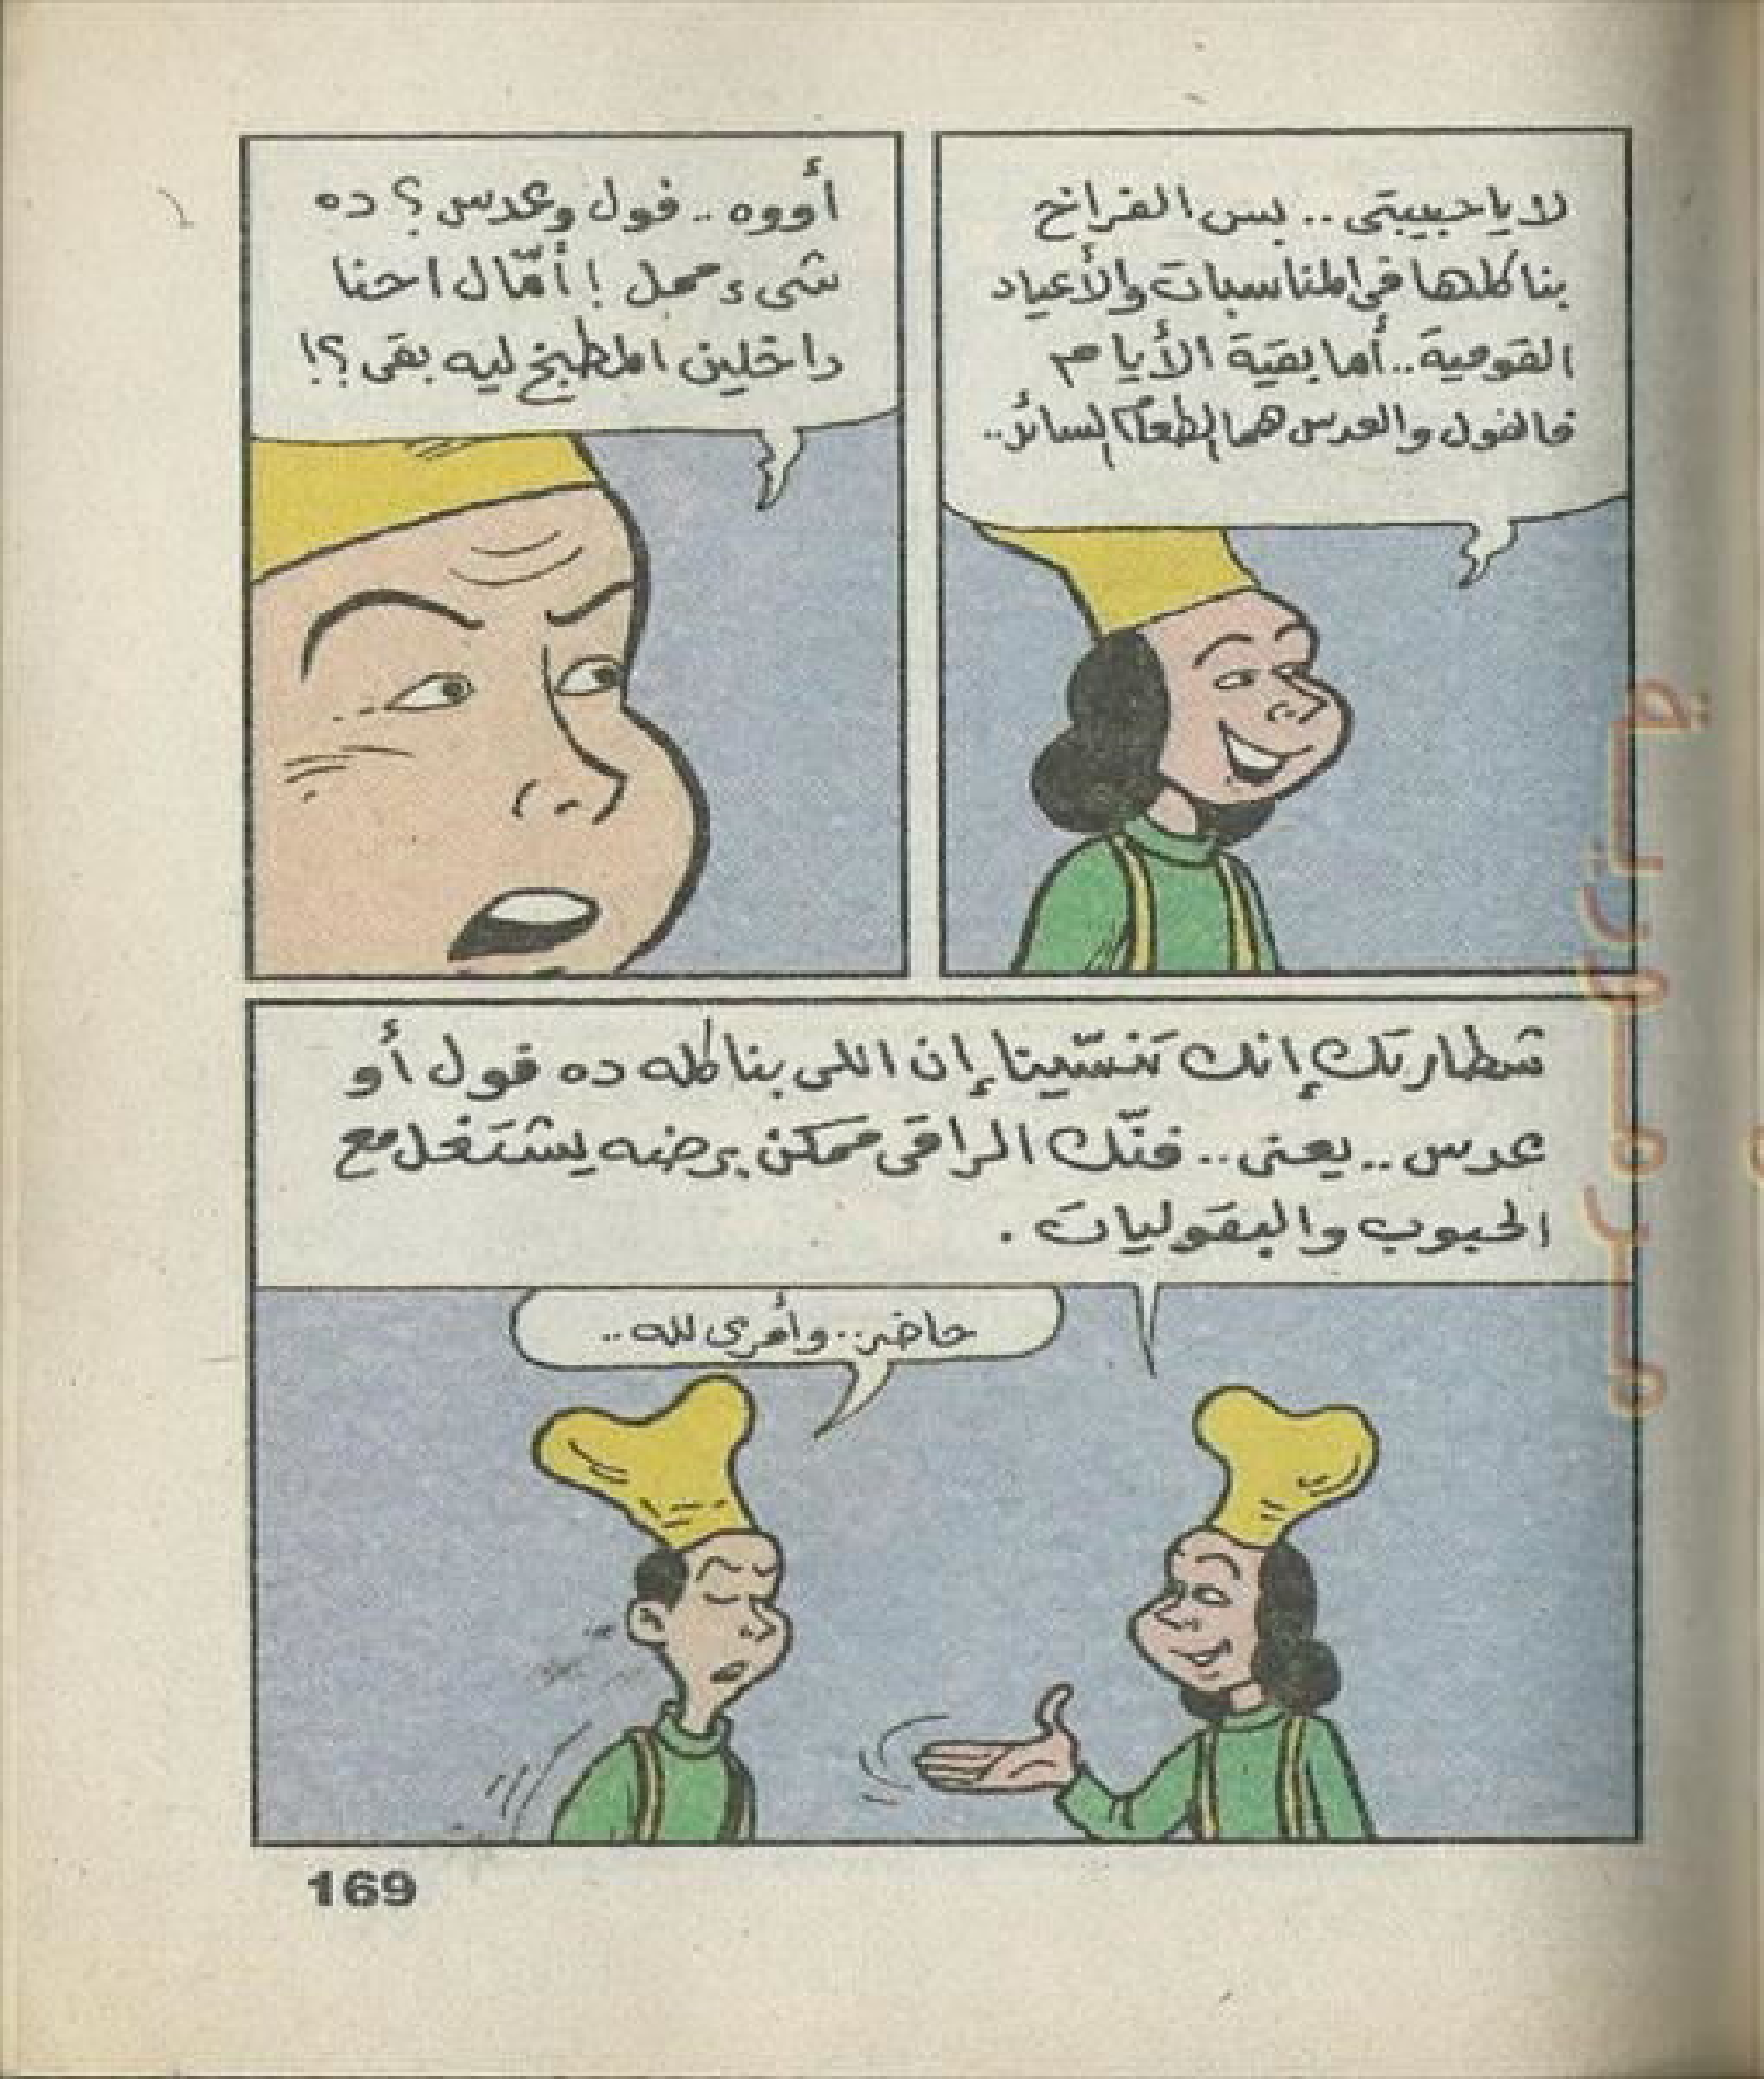 لا يا حبيبتى .. بس الفراخ
بناكلها فى المناسبات والأعياد
القومية .. أما بقية الأيام
فالفول والعدس هما الطعام السائد ..
أووه .. فول وعدس ؟ ده
شىء ممل ! أمّال احنا
داخلين المطبخ ليه بقى ؟!
شطارتك إنك تنسّينا إن اللى بناكله ده فول أو
عدس .. يعنى .. فنّك الراقى ممكن برضه يشتغل مع
الحبوب والبقوليات .
حاضر .. وأمرى لله ..
169